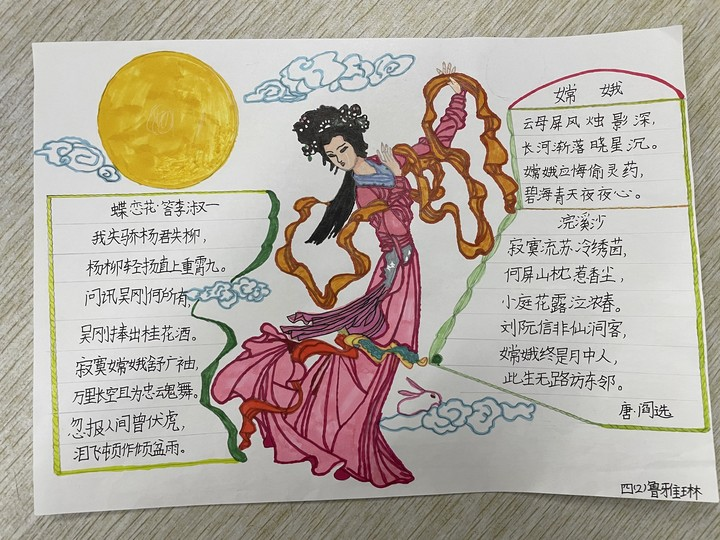 蝶恋花·答李淑一
我失骄杨君失柳,
杨柳轻扬直上重霄九。
问讯吴刚何所有,
吴刚捧出桂花酒。
寂寞嫦娥舒广袖,
万里长空且为忠魂舞。
忽报人间曾伏虎,
泪飞顿作倾盆雨。
嫦娥
云母屏风烛影深,
长河渐落晓星沉。
嫦娥应悔偷灵药,
碧海青天夜夜心。
浣溪沙
寂寞流苏冷绣茵,
何屏山枕惹香尘,
小庭花露泣浓春。
刘阮信非仙洞客,
嫦娥终是月中人,
此生无路访东邻。
唐·阎选
四(2)鲁雅琳